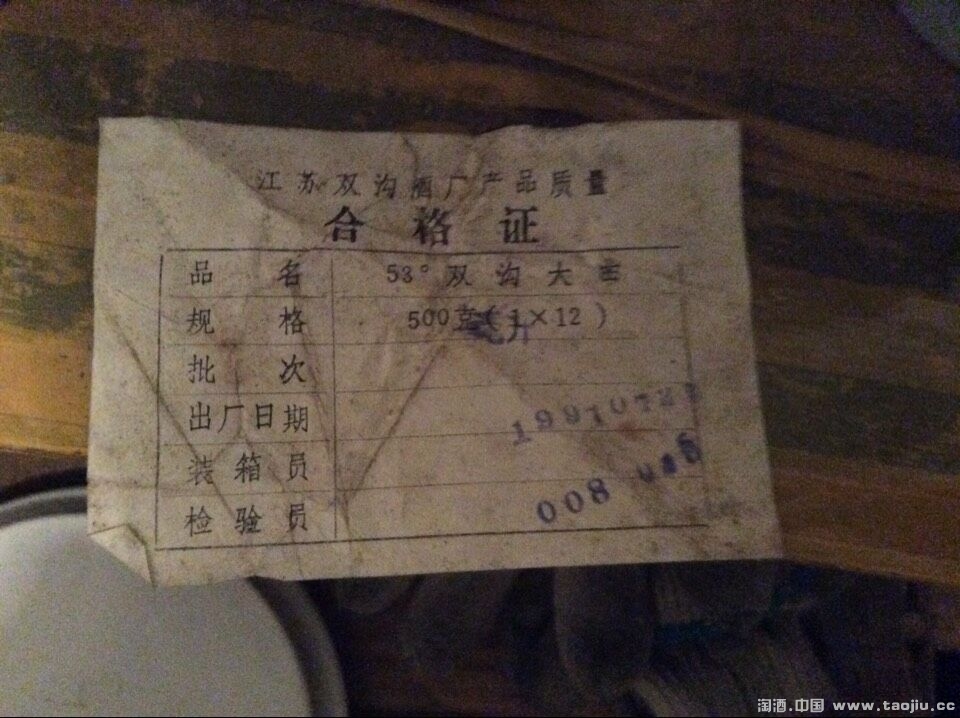 江苏双沟酒厂产品质量
合格证
品名 53°双沟大
规格 500克(1×12)
毫升
批次
出厂日期
装箱员
检验员
008
淘酒.中国 www.taojiu.cc